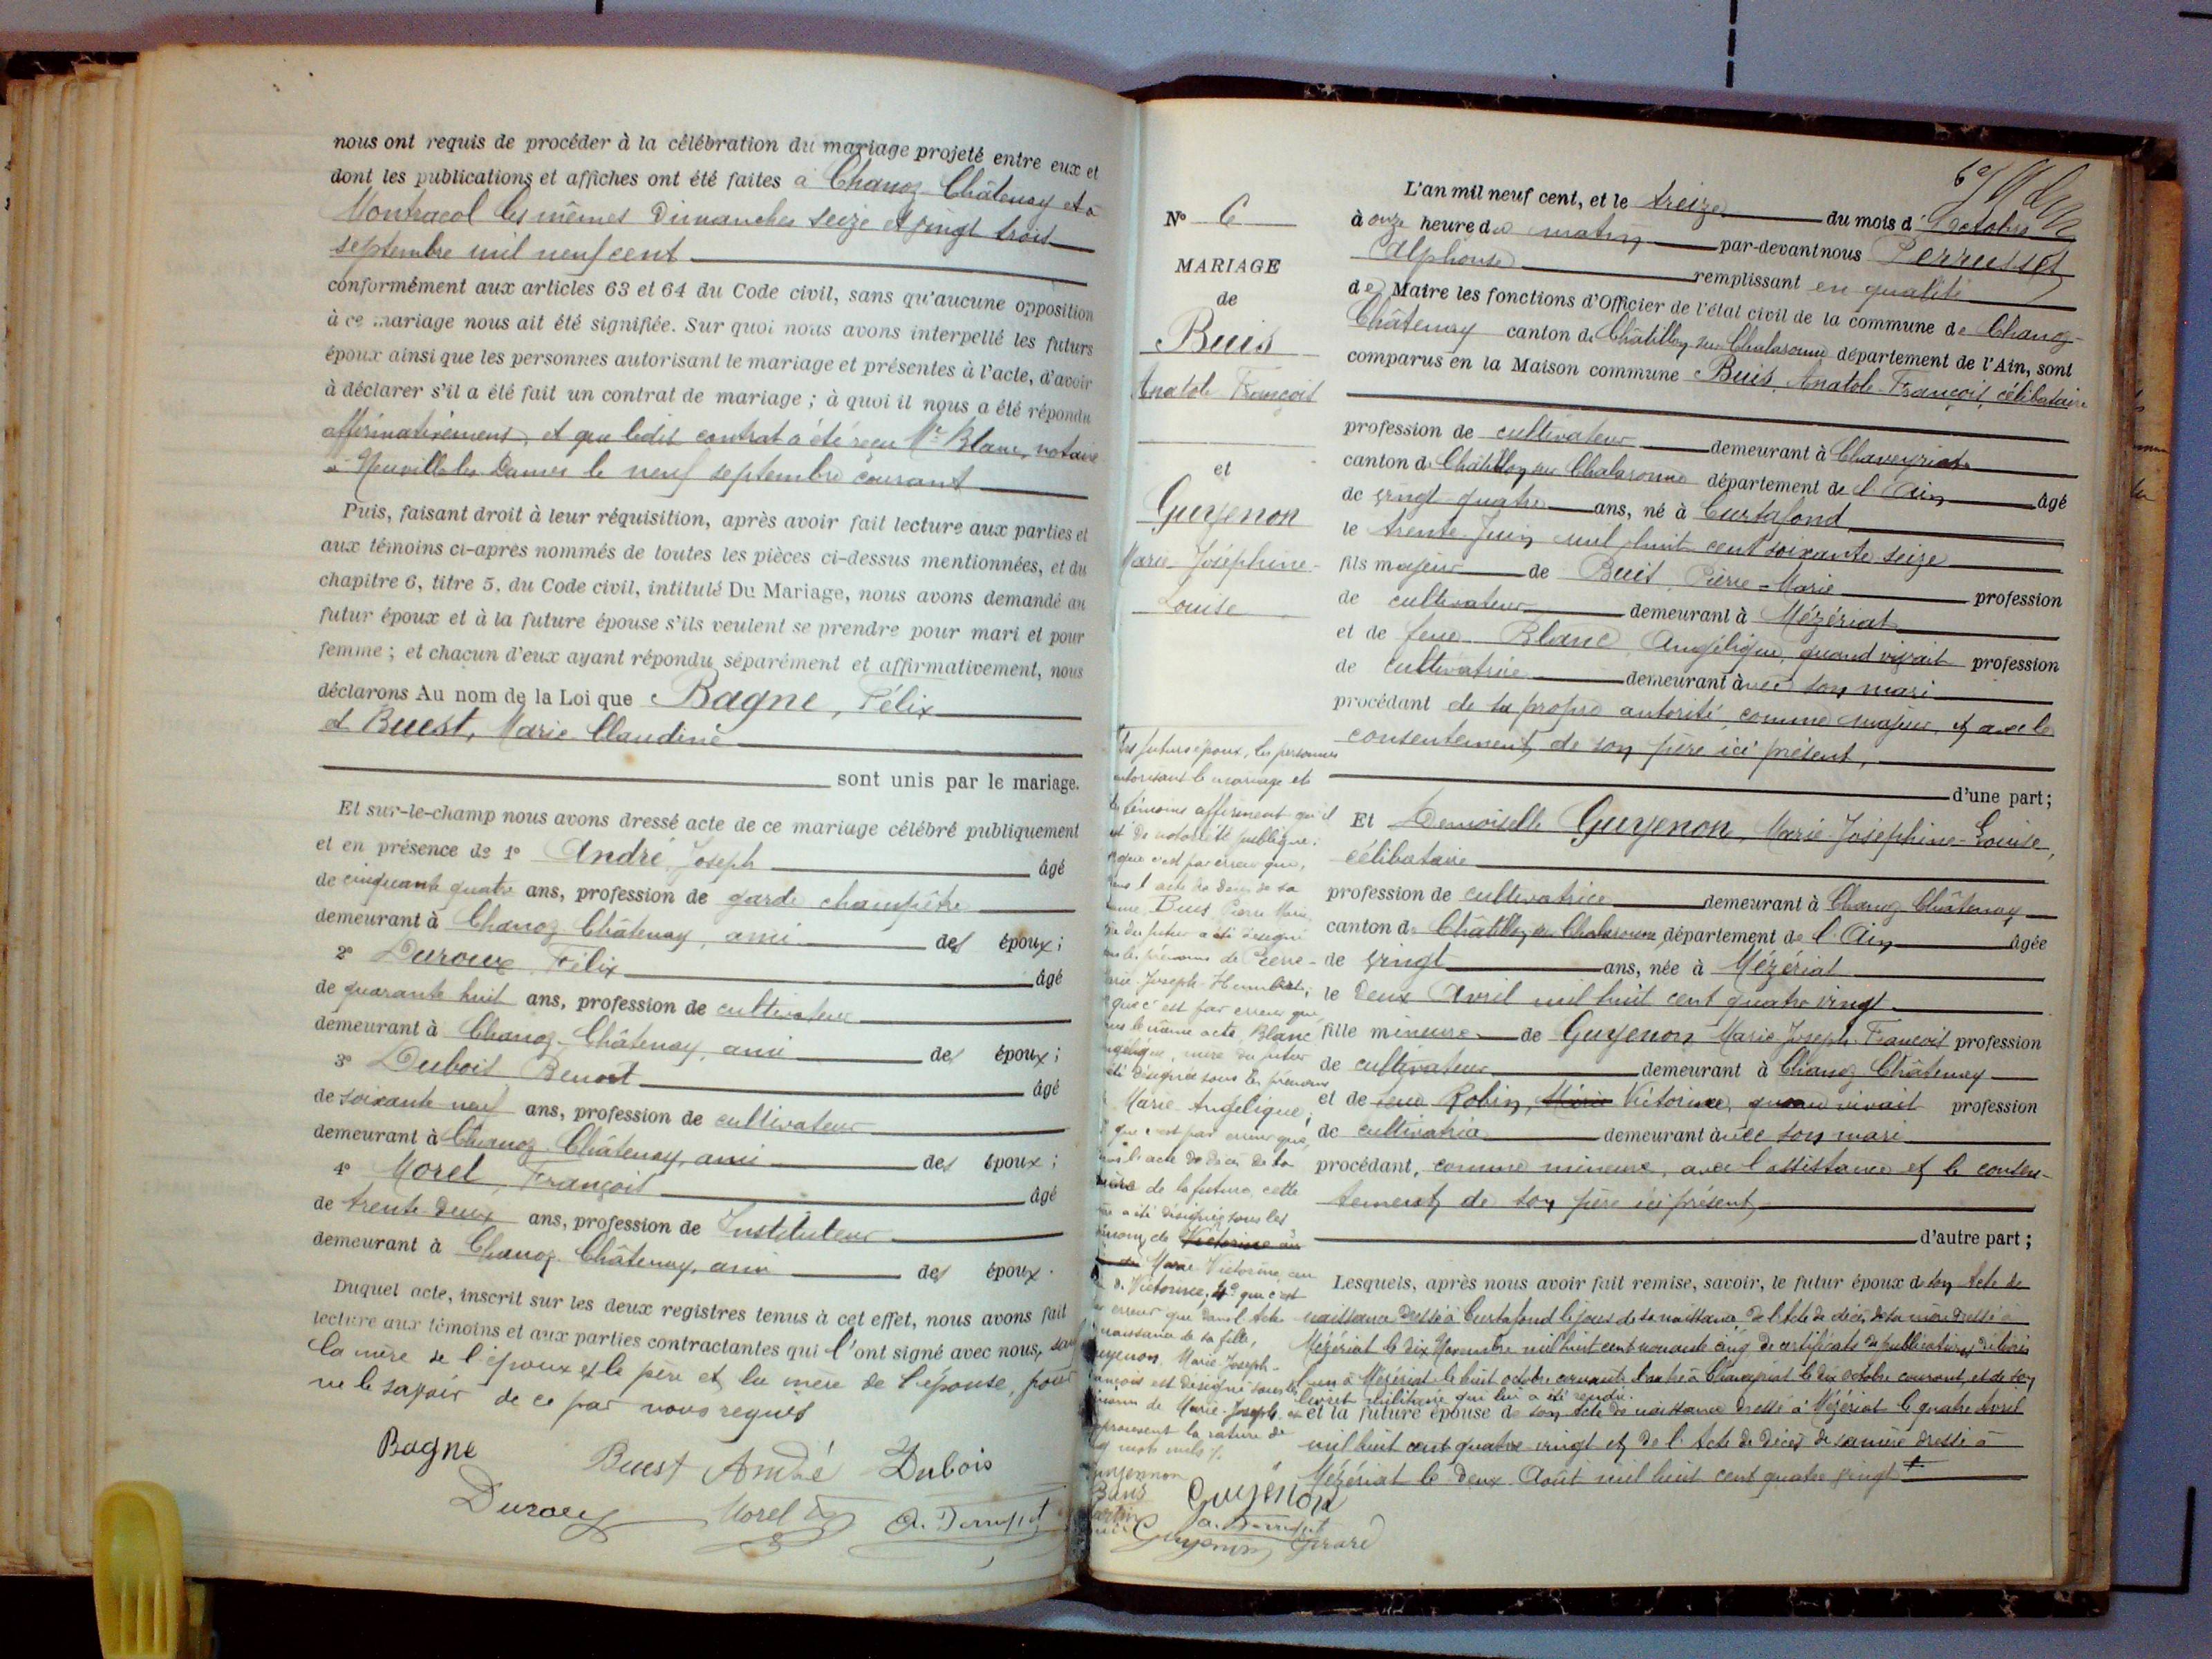 nous ont requis de procéder à la célébration du mariage projeté entre eux et
dont les publications et affiches ont été faites à Chanoz-Châtenay et à
Montracol les mêmes Dimanches seize et vingt trois
septembre mil neuf cent
conformément aux articles 63 et 64 du Code civil, sans qu'aucune opposition
à ce mariage nous ait été signifiée. Sur quoi nous avons interpellé les futurs
époux ainsi que les personnes autorisant le mariage et présentes à l'acte, d'avoir
à déclarer s'il a été fait un contrat de mariage ; à quoi il nous a été répondu
affirmativement, et que ledit contrat a été reçu Me Blanc, notaire
à Neuville les Dames le neuf septembre courant
Puis, faisant droit à leur réquisition, après avoir fait lecture aux parties et
aux témoins ci-après nommés de toutes les pièces ci-dessus mentionnées, et du
chapitre 6, titre 5, du Code civil, intitulé Du Mariage, nous avons demandé au
futur époux et à la future épouse s'ils veulent se prendre pour mari et pour
femme ; et chacun d'eux ayant répondu séparément et affirmativement, nous
déclarons Au nom de la Loi que Bagne, Félix
et Buest, Marie Claudine
sont unis par le mariage.
Et sur-le-champ nous avons dressé acte de ce mariage célébré publiquement
et en présence de 1° André Joseph âgé
de cinquante quatre ans, profession de garde champêtre
demeurant à Chanoz Châtenay, ami des époux ;
2° Duroux Félix âgé
de quarante huit ans, profession de cultivateur
demeurant à Chanoz-Châtenay, ami des époux ;
3° Dubois Benoît âgé
de soixante neuf ans, profession de cultivateur
demeurant à Chanoz Châtenay, ami des époux ;
4° Morel, François âgé
de trente-deux ans, profession de Instituteur
demeurant à Chanoz Châtenay, ami des époux.
Duquel acte, inscrit sur les deux registres tenus à cet effet, nous avons fait
lecture aux témoins et aux parties contractantes qui l'ont signé avec nous, sauf
la mère de l'époux et le père et la mère de l'épouse, pour
ne le savoir de ce par nous requis
Bagne Buest André Dubois
Duroux Morel
N° 6
MARIAGE
de
Buis
Anatole François
et
Guyenon
Marie Joséphine-
Louise
L'an mil neuf cent, et le treize du mois d'octobre
à onze heure du matin par-devant nous Perrusset
Alphonse remplissant en qualité
de Maire les fonctions d'Officier de l'état civil de la commune de Chanoz-
Châtenay canton de Châtillon sur Chalaronne département de l'Ain, sont
comparus en la Maison commune Buis Anatole-François, célibataire
profession de cultivateur demeurant à Chaveyriat
canton de Châtillon sur Chalaronne département de l'Ain âgé
de vingt-quatre ans, né à Curtafond
le trente Juin mil huit cent soixante seize
fils majeur de Buis Pierre-Marie profession
de cultivateur demeurant à Mézériat
et de feue Blanc Angélique, quand vivait profession
de cultivatrice demeurant avec son mari
procédant de sa propre autorité, comme majeur, et avec le
consentement de son père ici présent,
d'une part ;
Et Demoiselle Guyenon, Marie-Joséphine-Louise,
célibataire
profession de cultivatrice demeurant à Chanoz Châtenay
canton de Châtillon sur Chalaronne département de l'Ain âgée
de vingt ans, née à Mézériat
le deux Avril mil huit cent quatre vingt
fille mineure de Guyenon Marie Joseph-François profession
de cultivateur demeurant à Chanoz Châtenay
et de feue Robin, Marie Victorine, quand vivait profession
de cultivatrice demeurant avec son mari
procédant, comme mineure, avec l'assistance et le consen-
tement de son père ici présent
d'autre part ;
Lesquels, après nous avoir fait remise, savoir, le futur époux de son Acte de
naissance dressé à Curtafond le jour de sa naissance, de l'Acte de décès de sa mère dressé à
Mézériat le dix Novembre mil huit cent nonante cinq de certificats de publications délivrés
l'un à Mézériat le huit octobre courant l'autre à Chaveyriat le dix octobre courant, et de son
livret militaire qui lui a été rendu.
et la future épouse de son Acte de naissance dressé à Mézériat le quatre Avril
mil huit cent quatre vingt et de l'Acte de décès de sa mère dressé à
Mézériat le deux Août mil huit cent quatre vingt
les futurs époux, les personnes
autorisant le mariage et
les témoins affirment qu'il
est de notoriété publique
que c'est par erreur que,
dans l'acte de décès de sa
Buis Pierre Marie
père du futur a été désigné
sous les prénoms de Pierre-
Marie-Joseph
que c'est par erreur que
dans le même acte, Blanc
Angélique, mère du futur
été désignée sous les prénoms
Marie Angélique ;
que c'est par erreur que,
dans l'acte de décès de la
mère de la future, cette
a été désignée sous les
prénoms de Victorine au
Marie Victorine, au
Victorine, 4° que c'est
erreur que dans l'Acte
naissance de sa fille,
Guyenon, Marie-Joseph-
François est désigné sous les
prénoms de Marie-Joseph
approuvent la rature de
mots nuls
Guyennon
Buis Guyenon
Guyenon Girard